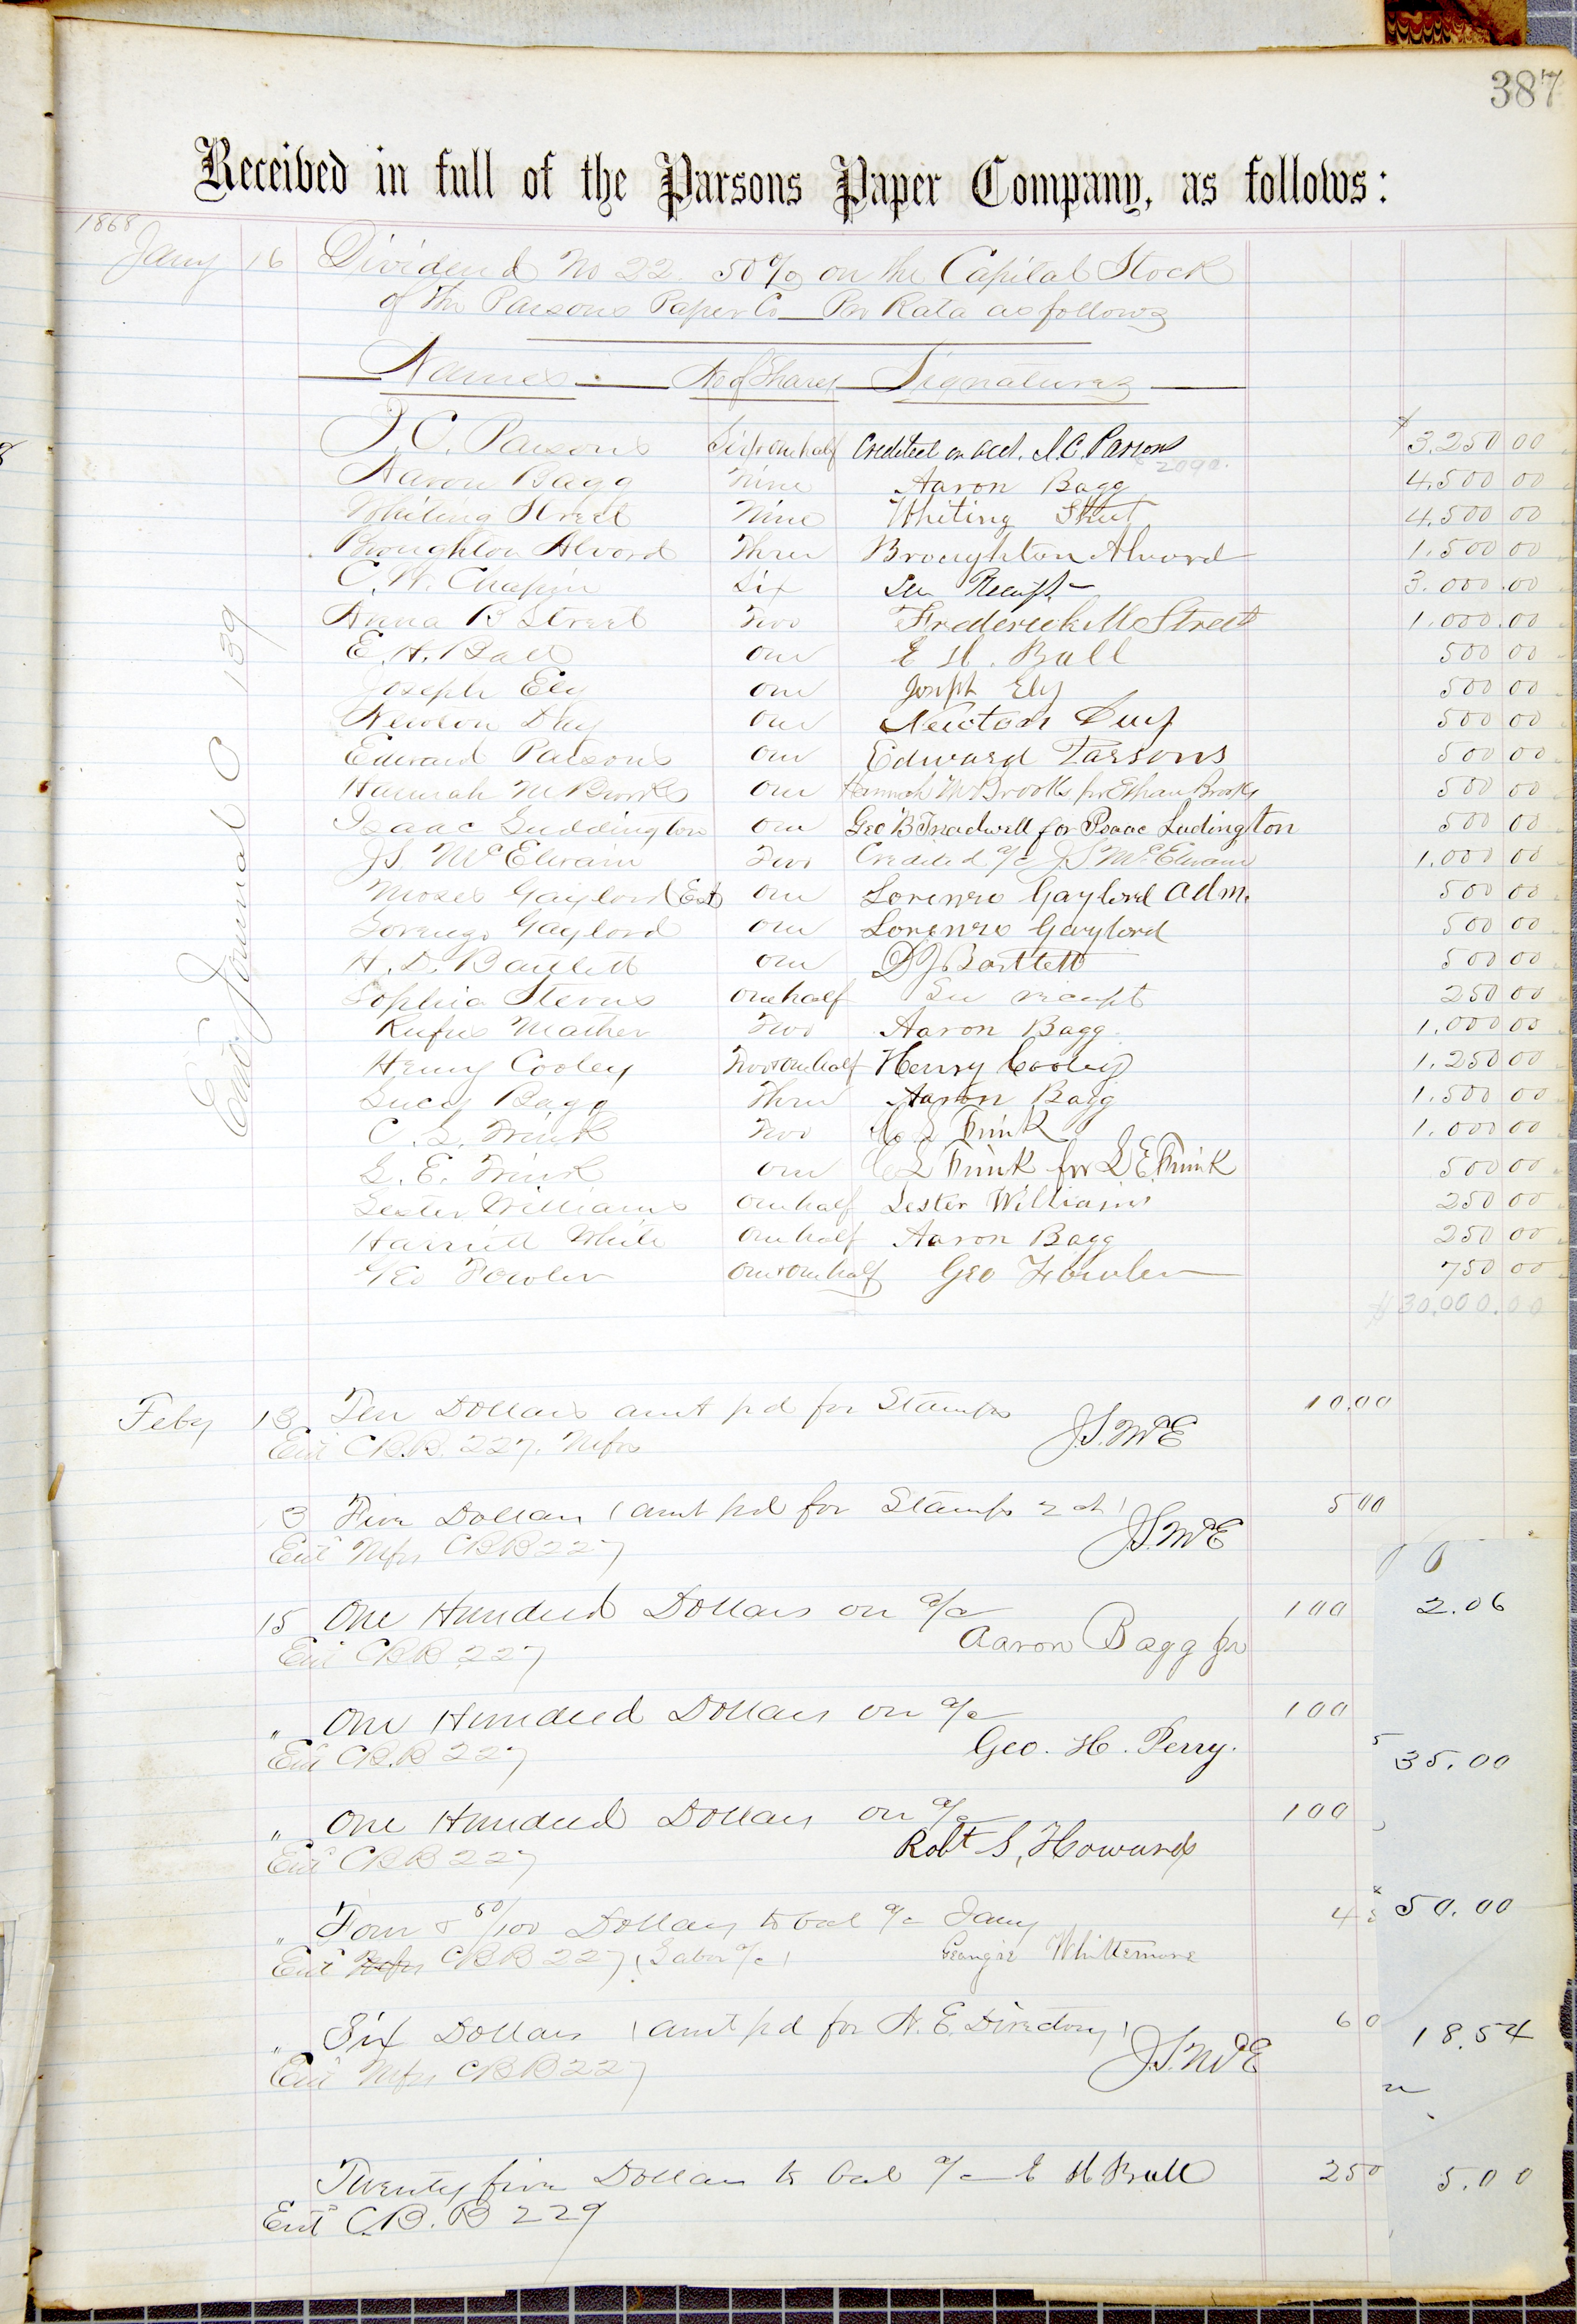 387
Received in full of the Parsons Paper Company, as follows:
1868
Jany 16 Dividend No 22. 50% on the Capital Stock
of The Parsons Paper Co Pro Rata as follows
Names No of Shares Signatures
J. C. Parsons Six & one half Credited on acct. J. C. Parsons $3,250 00
2090.
Aaron Bagg Nine Aaron Bagg 4,500 00
Whiting Street Nine Whiting Street 4,500 00
Broughton Alvord Three Broughton Alvord 1,500 00
C. W. Chapin Six See Receipt 3.000.00
Anna B Street Two Frederick M Street 1.000.00
E. H. Ball One E H. Ball 500 00
Joseph Ely One Joseph Ely 500 00
Newton Day One Newton Day 500 00
Edward Parsons One Edward Parsons 500 00
Hannah M Brooks One Hannah M Brooks for Ethan Brooks 500 00
Isaac Luddington One Geo B Treadwell for Isaac Ludington 500 00
J S. McElwain Two Credited a/c J S McElwain 1,000 00
Moses Gaylord Est One Lorenzo Gaylord Adm. 500 00
Lorenzo Gaylord One Lorenzo Gaylord 500 00
H. D. Bartlett One D J. Bartlett 500 00
Sophia Sterns One half See receipt 250 00
Rufus Mather Two Aaron Bagg 1,000 00
Henry Cooley Two & one half Henry Cooley 1,250 00
Lucy Bagg Three Aaron Bagg 1,500 00
C. L. Frink Two C L Frink 1.000 00
L. E. Frink One C L Frink for L E. Frink 500 00
Lester Williams One half Lester Williams 250 00
Harriett White One half Aaron Bagg 250 00
Geo Fowler One & one half Geo Fowler 750 00
$30,000.00
Entd Journal C 139
Feby 13 Ten Dollars amt pd for Stamps 10.00
Entd C.B.B. 227. Mfs J.S.McE
13 Five Dollars (amt pd for Stamps 500
Entd Mfs CBB 227 J.S.McE
15 One Hundred Dollars on a/c 100 2.06
Entd CBB 227 Aaron Bagg Jr
" One Hundred Dollars on a/c 100
Entd C.B.B 227 Geo. H. Perry. 35.00
" One Hundred Dollars on a/c 100
Entd CBB 227 Robt S, Howard
" Four & 50/100 Dollars to bal a/c Jany 4 50.00
Entd Mfs CBB 227 (Labor a/c) Georgie Whittemore
" Six Dollars (amt pd for N. E. Directory) 60 18.54
Entd Mfs CBB 227 J.S.McE
Twenty five Dollars to bal a/c E H Ball 250 5.00
Entd C.B.B 229